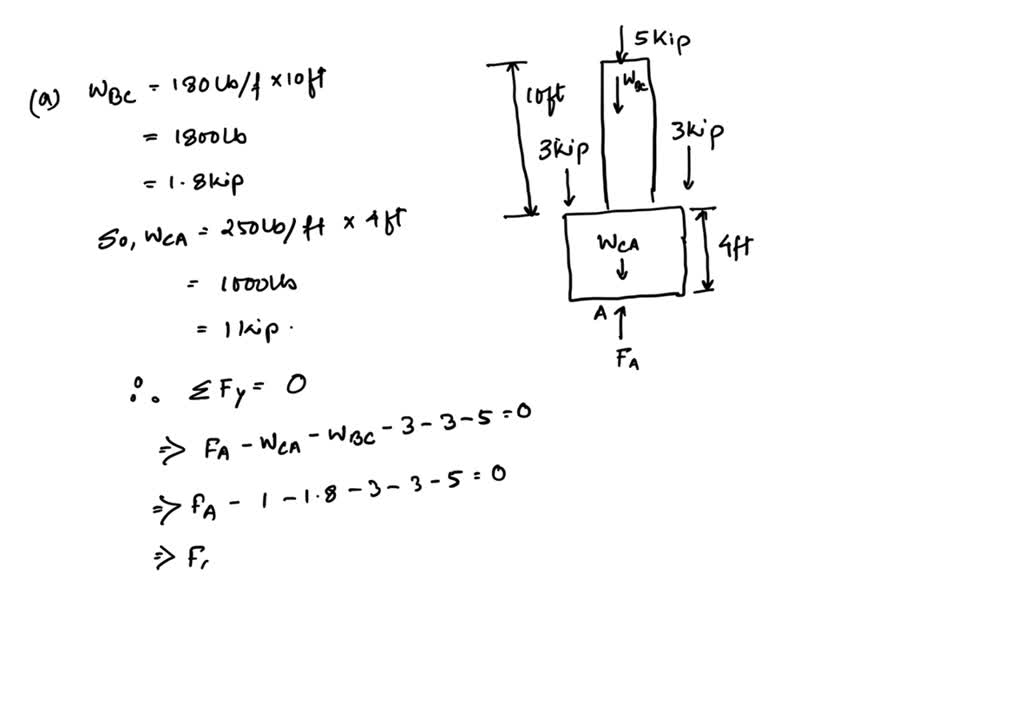 (a) WBC = 180 lb/f × 10ft
= 1800 lb
= 1.8 kip
So, WCA = 250 lb/ft × 4ft
= 1000 lb
= 1 kip.
∴ ΣFy = 0
⇒ FA - WCA - WBC - 3 - 3 - 5 = 0
⇒ FA - 1 - 1.8 - 3 - 3 - 5 = 0
⇒ F
5 Kip
WBC
10ft
3kip
3kip
WCA
4ft
A
FA